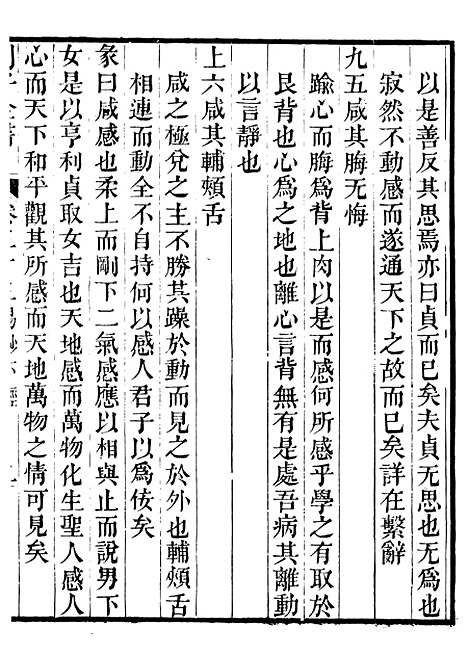 以是善反其思焉亦曰貞而已矣夫貞无思也无爲也
寂然不動感而遂通天下之故而已矣詳在繫辭
九五咸其脢无悔
踰心而脢爲背上肉以是而感何所感乎學之有取於
艮背也心爲之地也離心言背無有是處吾病其離動
以言靜也
上六咸其輔頰舌
咸之極兌之主不勝其躁於動而見之於外也輔頰舌
相連而動全不自持何以感人君子以爲佞矣
彖曰咸感也柔上而剛下二氣感應以相與止而說男下
女是以亨利貞取女吉也天地感而萬物化生聖人感人
心而天下和平觀其所感而天地萬物之情可見矣